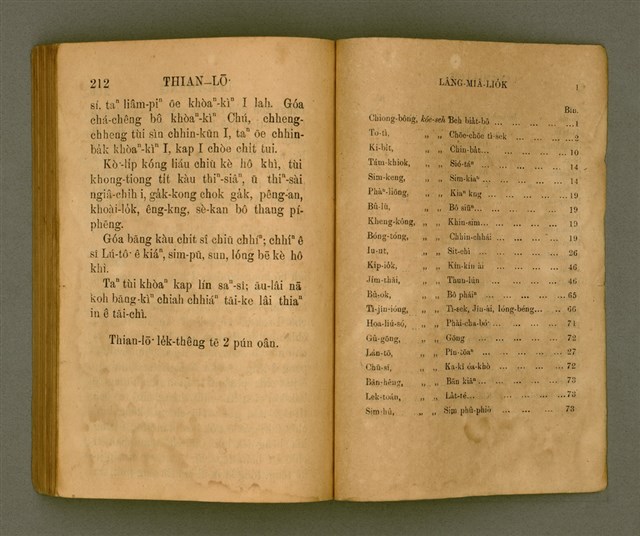 212 THIAN-LŌ·
sí, taⁿ liâm-piⁿ ōe khòaⁿ-kìⁿ I lah. Góa
chá-chêng bô khòaⁿ-kìⁿ Chú, chheng-
chheng tùi sìn chhin-kūn I, taⁿ ōe chhin-
ba̍k khòaⁿ-kìⁿ I, kap I chòe chi̍t tui.
Kò·-li̍p kóng liáu chiū kè hô khì, tùi
khong-tiong ti̍t kàu thiⁿ-siâⁿ, ū thiⁿ-sài
ngiâ-chih i, ga̍k-kong chok ga̍k, pêng-an,
khoài-lo̍k, êng-kng, sè-kan bô thang pí-
phēng.
Góa bāng kàu chit sî chiū chhíⁿ; chhíⁿ ê
sî Lú-tô· ê kiáⁿ, sim-pū, sun, lóng bē kè hô
khì.
Taⁿ tùi khòaⁿ kap lín saⁿ-sî; āu-lâi nā
koh bāng-kìⁿ chiah chhiáⁿ tāi-ke lâi thiaⁿ
in ê tāi-chì.
Thian-lō· le̍k-thêng tē 2 pún oân.
LÂNG-MIÂ-LIO̍K 1
Bīn.
Chiong-bông, kóe-seh Beh bia̍t-bô ... ... ...1
To-tì, „ „ Chōe-chōe tì-sek ... ... ...2
Kí-bi̍t, „ „ Chin-ba̍t... ... ... ... 10
Túm-khiok, „ „ Sió-táⁿ ... ... ... ... 14
Sim-keng, „ „ Sim-kiaⁿ ... ... ... ... 14
Phàⁿ-liông, „ „ Kiaⁿ kng ... ... ... ... 19
Bû-lū, „ „ Bô siūⁿ... ... ... ... 19
Kheng-kông, „ „ Khin-sim... ... ... ... 19
Bóng-tóng, „ „ Chhin-chhái ... ... ... 19
Iu-ut, „ „ Sit-chì ... ... ... ... 26
Ki̍p-io̍k, „ „ Kín-kín ài ... ... ... 46
Jím-thāi, „ „ Thun-lún ... ... ... 46
Bû-ok, „ „ Bô pháiⁿ ... ... ... ... 65
Tì-jîn-ióng, „ „ Tì-sek, Jîn-ài, Ióng-béng... .. 66
Hoa-liú-só, „ „ Phàiⁿ-cha-bó·... ... ... 71
Gû-gōng, „ „ Gōng ... ... ... ... 72
Lán-tō, „ „ Pîn-tōaⁿ ... ... ... ... 27
Chū-sī, „ „ Ka-kī óa-khò ... ... ... 72
Bān-hêng, „ „ Bān kiâⁿ... ... ... ... 73
Lek-toán, „ „ La̍t-té... ... ... ...73
Sim-hû, „ „ Sim phû-phiò ... ... ... 73